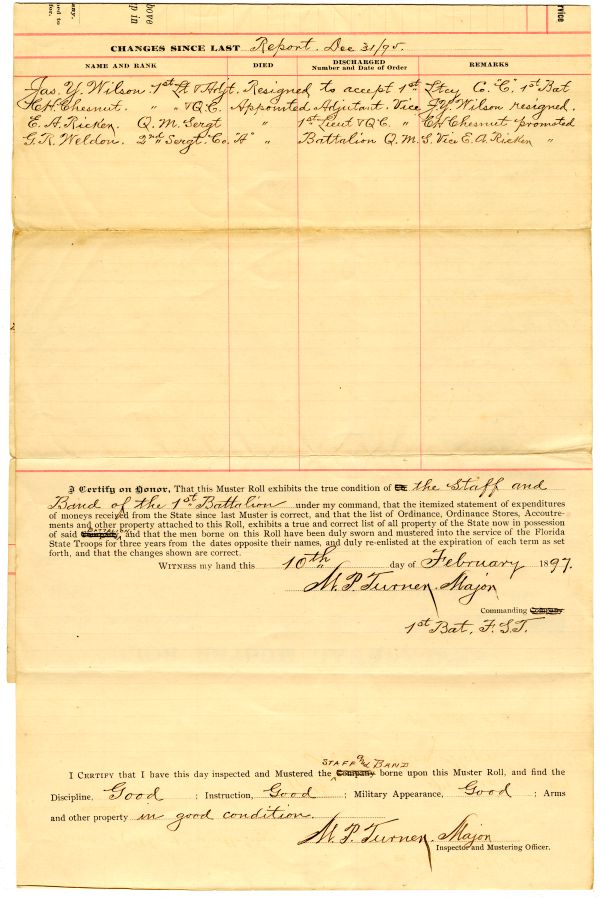 any.
for.
above
up in
rvice
CHANGES SINCE LAST Report. Dec 31/95.
NAME AND RANK DIED DISCHARGED Number and Date of Order REMARKS
Jas. Y. Wilson 1st Lt & Adjt. Resigned to accept 1st Ltcy Co. "C." 1st Bat
C.H. Chesnut. " " & Q.C. Appointed Adjutant. Vice J.Y. Wilson resigned.
E. A. Ricker. Q. M. Sergt " 1st Lieut & Q.C. " C.H. Chesnut promoted
G. R. Weldon. 2nd Sergt. Co. "A" " Battalion Q. M. S. Vice E. A. Ricker "
I Certify on Honor, That this Muster Roll exhibits the true condition of the the Staff and
Band of the 1st Battalion under my command, that the itemized statement of expenditures
of moneys received from the State since last Muster is correct, and that the list of Ordinance, Ordinance Stores, Accoutre-
ments and other property attached to this Roll, exhibits a true and correct list of all property of the State now in possession
of said Company, BATTALION, and that the men borne on this Roll have been duly sworn and mustered into the service of the Florida
State Troops for three years from the dates opposite their names, and duly re-enlisted at the expiration of each term as set
forth, and that the changes shown are correct.
WITNESS my hand this 10th day of February 1897.
M. P. Turner. Major
Commanding Company
1st Bat, F.S.T.
STAFF and BAND
I CERTIFY that I have this day inspected and Mustered the Company borne upon this Muster Roll, and find the
Discipline, Good ; Instruction, Good ; Military Appearance, Good ; Arms
and other property in good condition.
M. P. Turner. Major
Inspector and Mustering Officer.